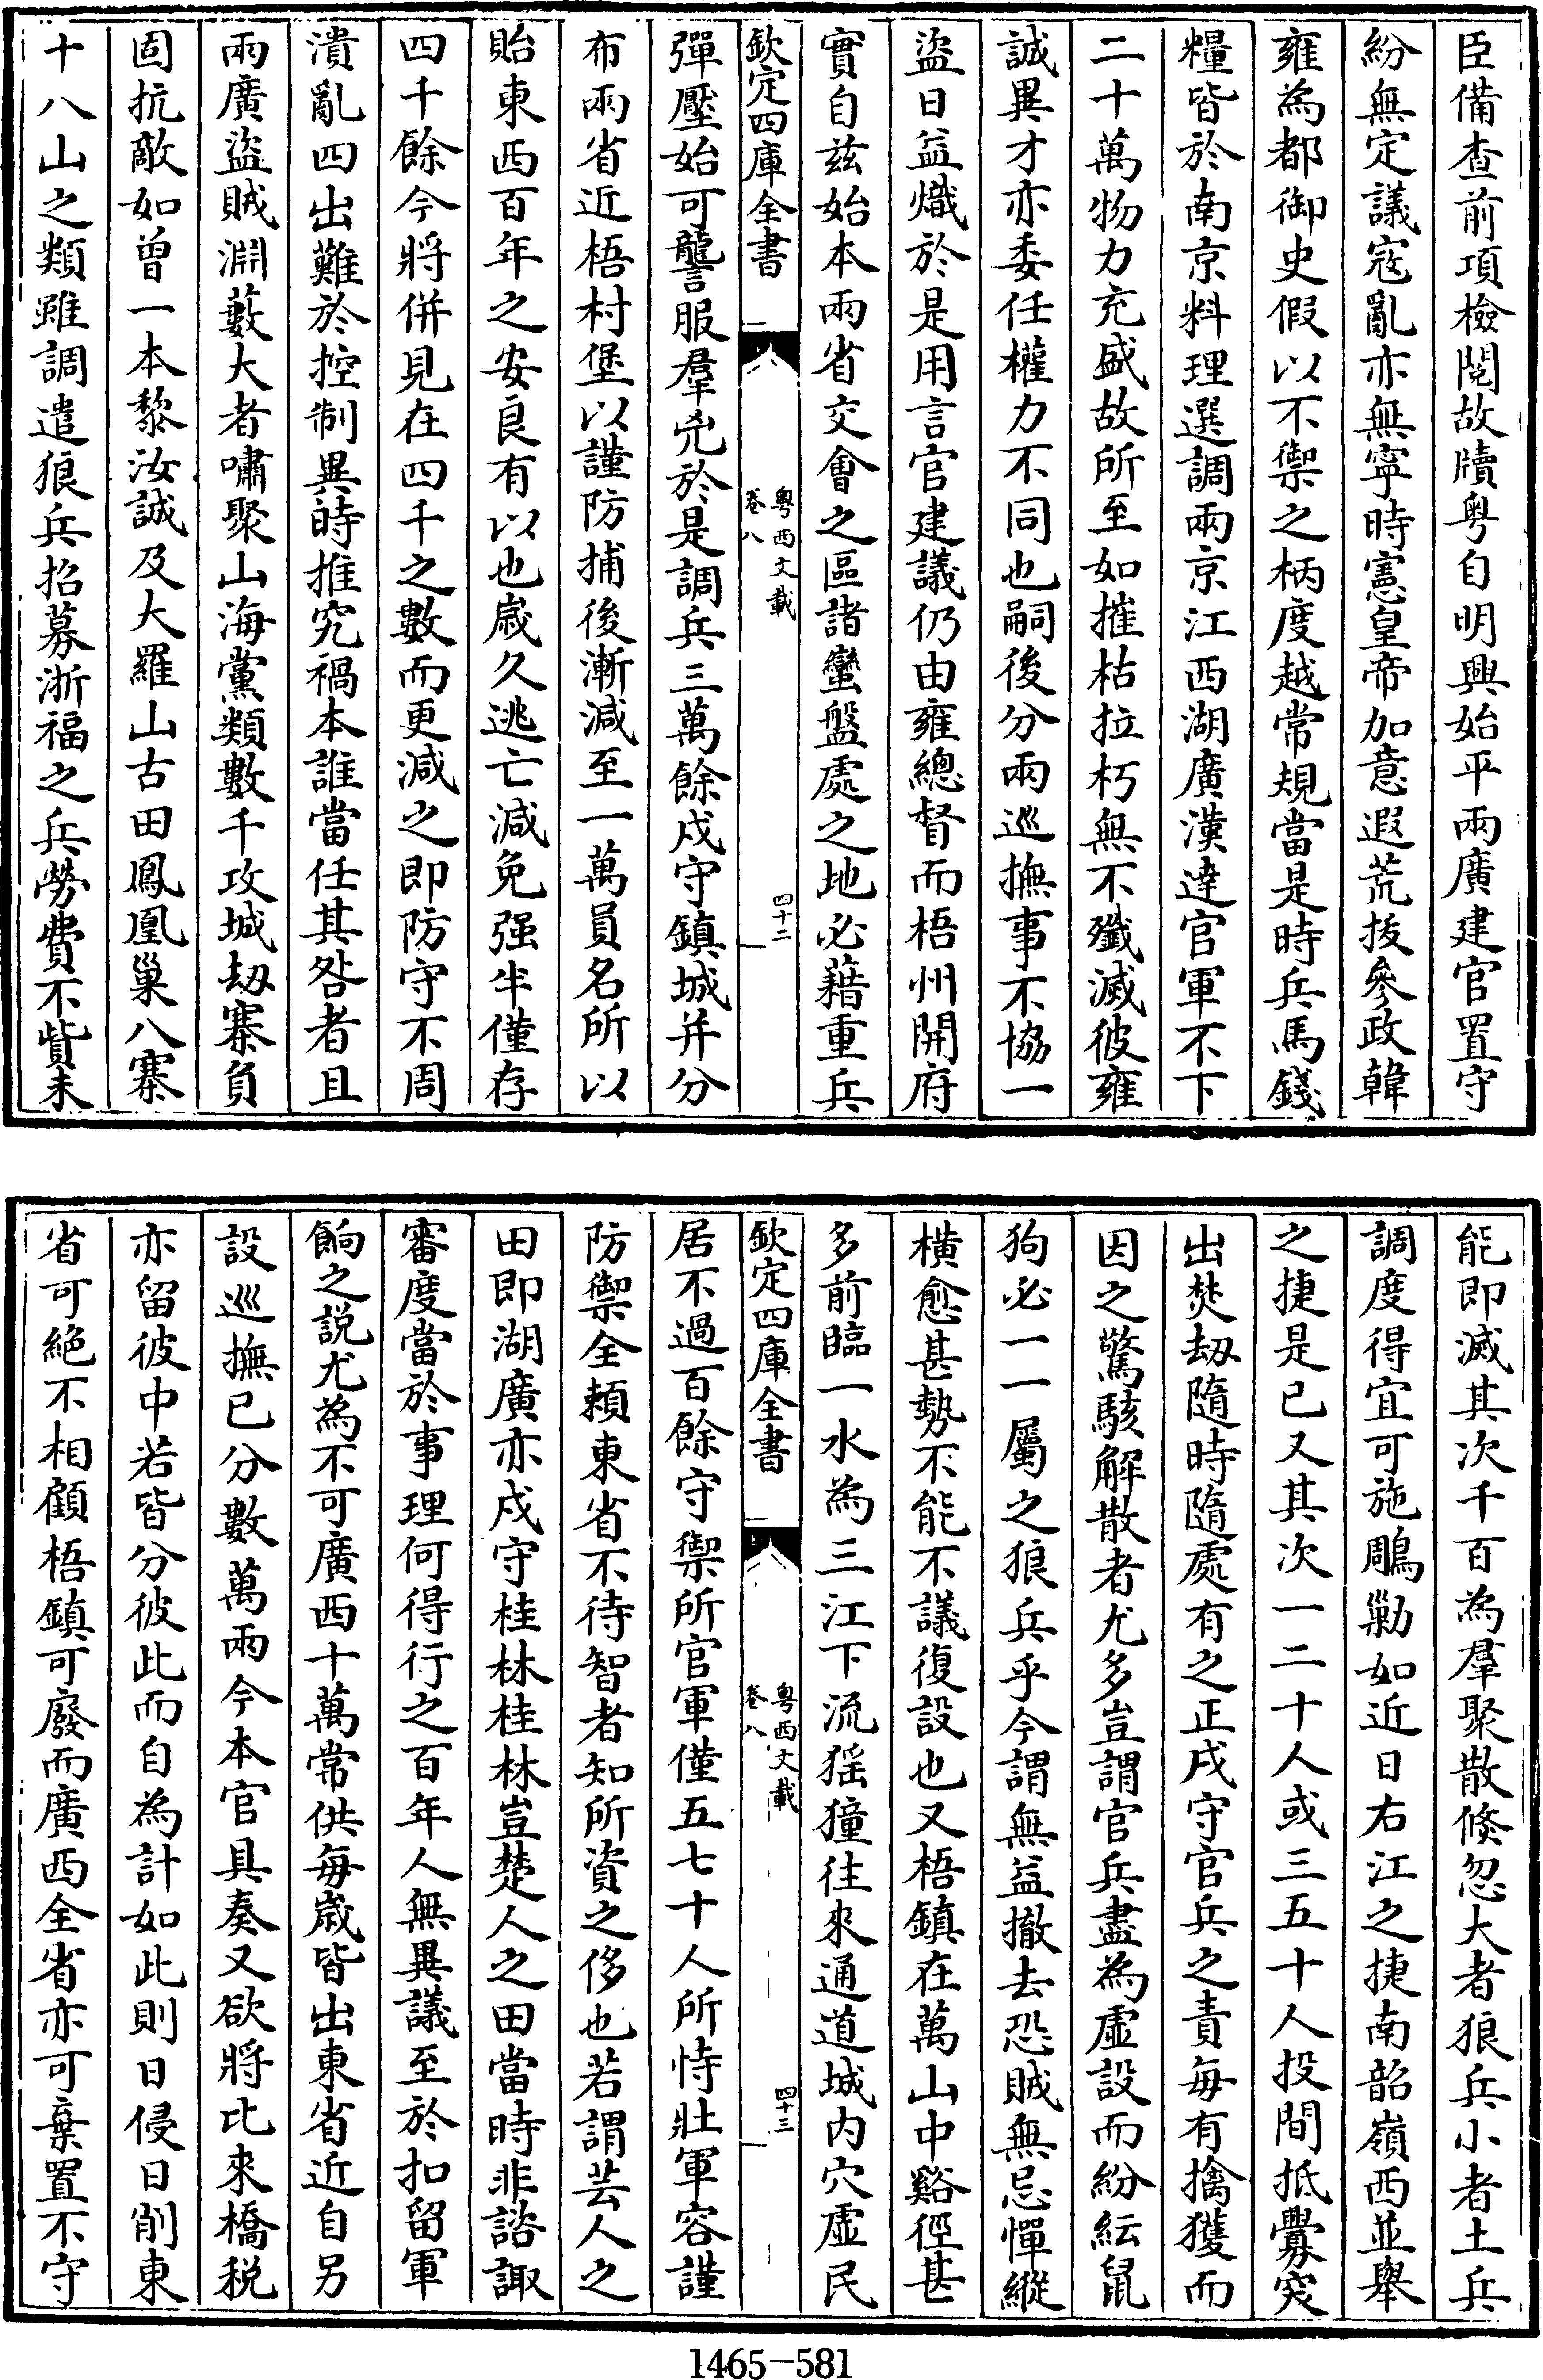 臣備查前項檢閱故牘粤自明興始平兩廣建官置守
紛無定議寇亂亦無寧時憲皇帝加意遐荒拔參政韓
雍為都御史假以不禦之柄度越常規當是時兵馬錢
糧皆於南京料理選調兩京江西湖廣漢達官軍不下
二十萬物力充盛故所至如摧枯拉朽無不殱滅彼雍
誠異才亦委任權力不同也嗣後分兩巡撫事不協一
盜日益熾於是用言官建議仍由雍總督而梧州開府
實自茲始本兩省交會之區諸蠻盤處之地必藉重兵
欽定四庫全書
粤西文載
卷八
四十二
彈壓始可讋服羣兇於是調兵三萬餘戍守鎮城并分
布兩省近梧村堡以謹防捕後漸減至一萬員名所以
貽東西百年之安良有以也嵗久逃亡減免强半僅存
四千餘今將併見在四千之數而更減之即防守不周
潰亂四出難於控制異時推究禍本誰當任其咎者且
兩廣盜賊淵藪大者嘯聚山海黨類數千攻城刼寨負
固抗敵如曽一本黎汝誠及大羅山古田鳳凰巢八寨
十八山之類雖調遣狼兵招募浙福之兵勞費不貲未
能即滅其次千百為羣聚散倐忽大者狼兵小者土兵
調度得宜可施鵰勦如近日右江之捷南韶嶺西並舉
之捷是已又其次一二十人或三五十人投間抵釁突
出焚刼隨時隨處有之正戍守官兵之責每有擒獲而
因之驚駭解散者尤多豈謂官兵盡為虛設而紛紜鼠
狗必一一屬之狼兵乎今謂無益撤去恐賊無忌憚縱
橫愈甚勢不能不議復設也又梧鎮在萬山中谿徑甚
多前臨一水為三江下流猺獞往來通道城内穴虛民
欽定四庫全書
粤西文載
卷八
四十三
居不過百餘守禦所官軍僅五七十人所恃壯軍容謹
防禦全頼東省不待智者知所資之侈也若謂芸人之
田即湖廣亦戍守桂林桂林豈楚人之田當時非諮諏
審度當於事理何得行之百年人無異議至於扣留軍
餉之說尤為不可廣西十萬常供每嵗皆出東省近自另
設巡撫已分數萬兩今本官具奏又欲將比來橋稅
亦留彼中若皆分彼此而自為計如此則日侵日削東
省可絶不相顧梧鎮可廢而廣西全省亦可棄置不守
1465-581